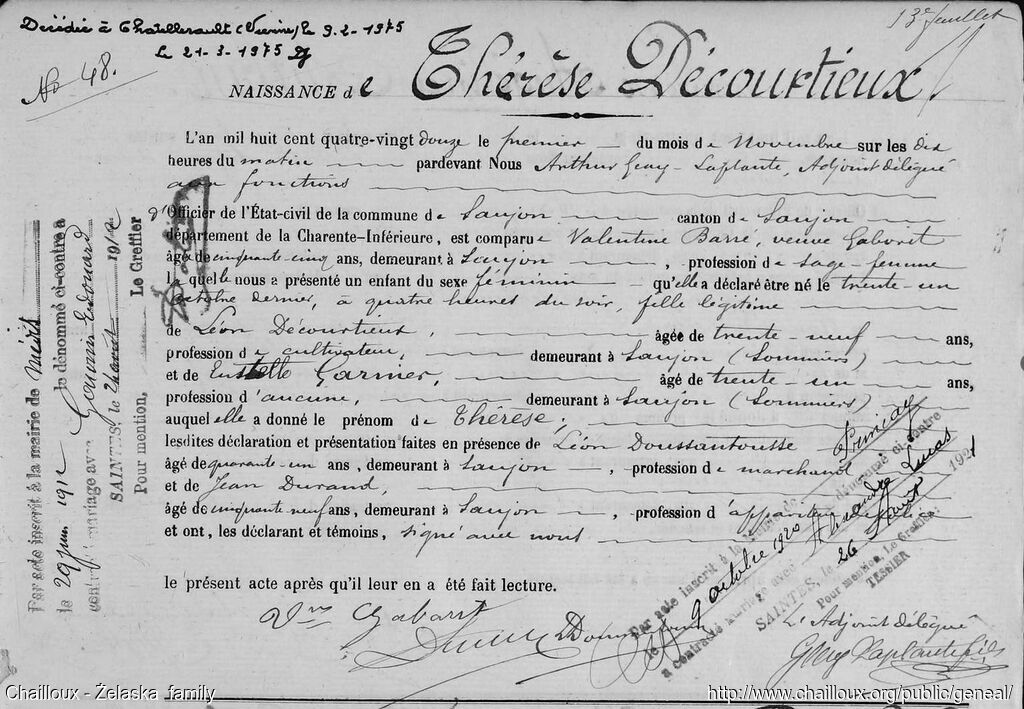 Décédée à Chatellerault (Vienne) le 9-2-1975
Le 21-3-1975
13e feuillet
No 48.
NAISSANCE de Thérèse Décourtieux
L'an mil huit cent quatre-vingt douze le premier du mois de Novembre sur les dix
heures du matin pardevant Nous Arthur Geay-Laplante, Adjoint délégué
aux fonctions
d'Officier de l'État-civil de la commune de Saujon canton de Saujon
département de la Charente-Inférieure, est comparue Valentine Barré veuve Gaboret
âgée de cinquante-cinq ans, demeurant à Saujon, profession de sage-femme
laquelle nous a présenté un enfant du sexe féminin qu'elle a déclaré être né le trente-un
octobre dernier, à quatre heures du soir, fille légitime
de Léon Décourtieux, âgée de trente-neuf ans,
profession de cultivateur, demeurant à Saujon (Sommiers)
et de Eustelle Garnier, âgé de trente-un ans,
profession d'aucune, demeurant à Saujon (Sommiers)
auquel elle a donné le prénom de Thérèse;
lesdites déclaration et présentation faites en présence de Léon Doussantousse
âgé de quarante-un ans, demeurant à Saujon, profession de marchand
et de Jean Durand,
âgé de cinquante neuf ans, demeurant à Saujon, profession d'appariteur
et ont, les déclarant et témoins, signé avec nous
le présent acte après qu'il leur en a été fait lecture.
Vve Gaboret
L'Adjoint délégué
Geay Laplante fils
Par acte inscrit à la mairie de
le 29 juin 191 le dénommé ci-contre a
contracté mariage avec Édouard
SAINTES, le 2 août 191
Pour mention, Le Greffier
Par acte inscrit à la mairie de
le 9 octobre 1920 dénommé ci-contre
a contracté mariage avec Alexandre Lucas
SAINTES, le 26 Août 1921
Pour mention, Le Greffier,
TESSIER
Chailloux - Żelaska family
http://www.chailloux.org/public/geneal/